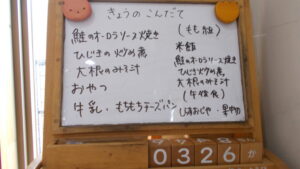 きょうのこんだて
鮭のオーロラソース焼き
ひじきの炒め煮
大根のみそ汁
おやつ
牛乳・もちもちチーズパン
(もも組)
米飯
鮭のオーロラソース焼き
ひじきの炒め煮
大根のみそ汁
(午後食)
しらすおじや・果物
0326